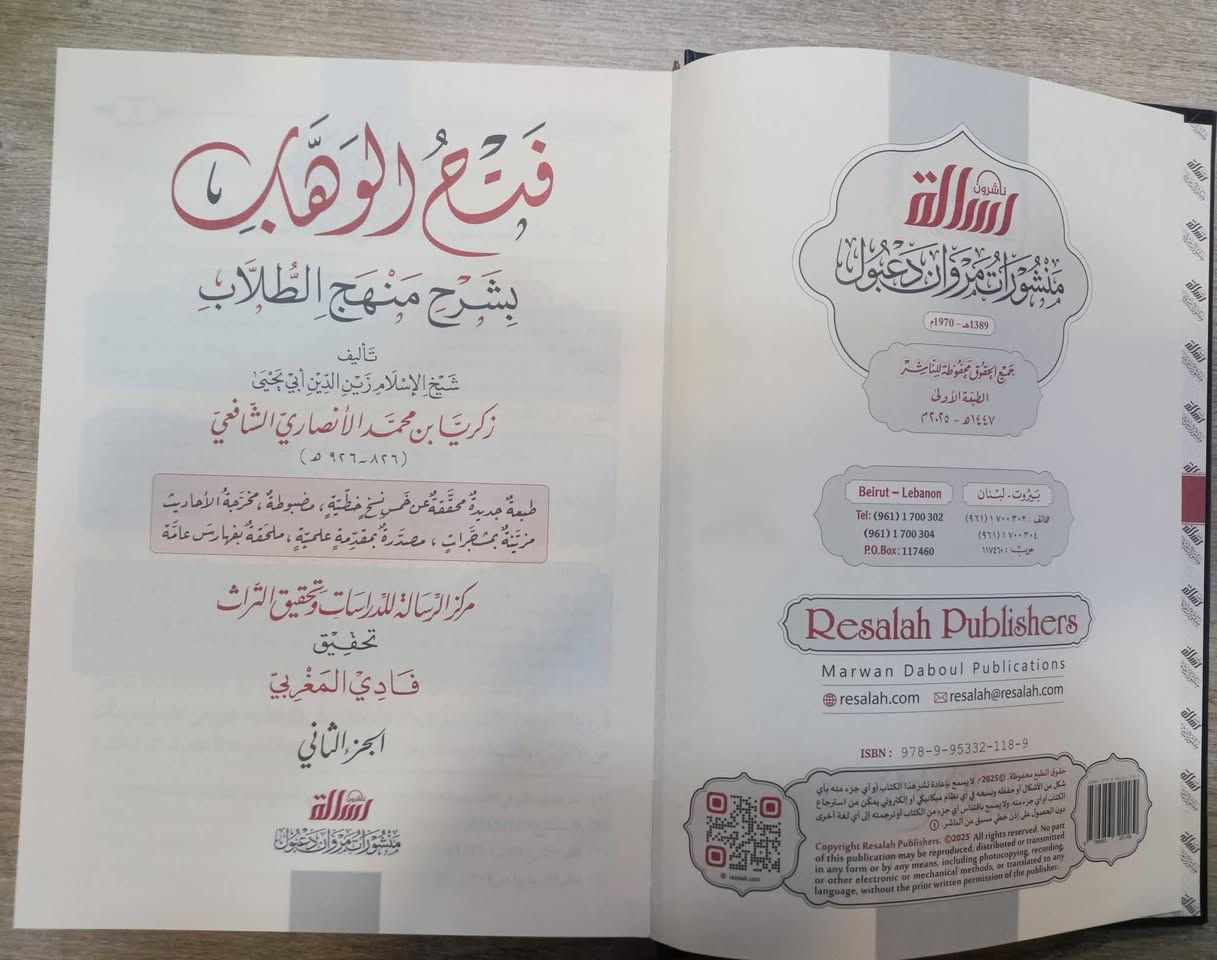 ناشرون
رسالة
منشورات مروان دعبول
1389هـ - 1970م
جميع الحقوق محفوظة للناشر
الطبعة الأولى
١٤٤٧هـ - ٢٠٢٥م
بيروت - لبنان
هاتف: ٧٠٠٣٠٢ ١ (٩٦١)
٧٠٠٣٠٤ ١ (٩٦١)
ص.ب: ١١٧٤٦٠
Beirut – Lebanon
Tel: (961) 1 700 302
(961) 1 700 304
P.O.Box: 117460
Resalah Publishers
Marwan Daboul Publications
resalah.com resalah@resalah.com
ISBN: 978-9-95332-118-9
حقوق الطبع محفوظة. ©2025م لا يسمح بإعادة نشر هذا الكتاب أو أي جزء منه بأي
شكل من الأشكال أو حفظه ونسخه في أي نظام ميكانيكي أو إلكتروني يمكّن من استرجاع
الكتاب أو أي جزء منه. ولا يسمح باقتباس أي جزء من الكتاب أو ترجمته إلى أي لغة أخرى
دون الحصول على إذن خطي مسبق من الناشر.
Copyright Resalah Publishers. ©2025 All rights reserved. No part
of this publication may be reproduced, distributed or transmitted
in any form or by any means, including photocopying, recording,
or other electronic or mechanical methods, or translated to any
language, without the prior written permission of the publisher.
resalah.com
فَتْحُ الوَهَّابِ
بِشَرْحِ مَنْهَجِ الطُّلَّابِ
تأليف
شَيْخ الإسْلَام زَيْن الدِّين أبي يَحْيَى
زكريَّا بن محمَّد الأنصاريّ الشَّافعيّ
(٨٢٦-٩٢٦ هـ)
طبعةٌ جديدةٌ محقَّقةٌ عن خمسِ نسخٍ خطّيّةٍ، مضبوطةٌ، مخرَّجةُ الأحاديث
مزيَّنةٌ بمشجَّراتٍ، مصدَّرةٌ بمقدّمةٍ علميّةٍ، ملحقةٌ بفهارسَ عامَّة
مركز الرسالة للدراسات وتحقيق التراث
تحقيق
فَادِي المَغْرِبيّ
الجزء الثاني
ناشرون
رسالة
منشورات مروان دعبول